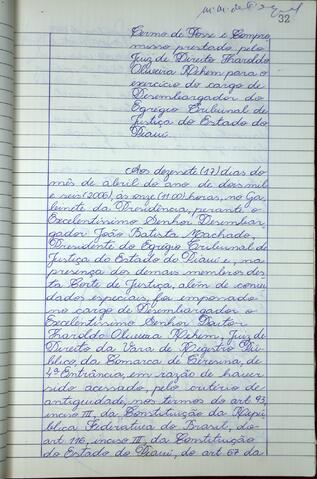 32
Termo de Posse e Compro
misso prestado pelo
Juiz de Direito Haroldo
Oliveira Rehem para o
exercício do cargo de
Desembargador do
Egrégio Tribunal de
Justiça do Estado do
Piauí.
Aos dezessete (17) dias do
mês de abril do ano de dois mil
e seis (2006), às onze (11:00) horas, no Ga-
binete da Presidência, perante o
Excelentíssimo Senhor Desembar-
gador João Batista Machado,
Presidente do Egrégio Tribunal de
Justiça do Estado do Piauí e, na
presença dos demais membros des-
ta Corte de Justiça, além de convi
dados especiais, foi empossado
no cargo de Desembargador o
Excelentíssimo Senhor Doutor
Haroldo Oliveira Rehem, Juiz de
Direito da Vara de Registro Pú-
blico da Comarca de Teresina, de
4ª Entrância, em razão de haver
sido acessado, pelo critério de
antiguidade, nos termos do art. 93,
inciso III, da Constituição da Repú
blica Federativa do Brasil, do
art. 116, inciso III, da Constituição
do Estado do Piauí, do art. 67 da